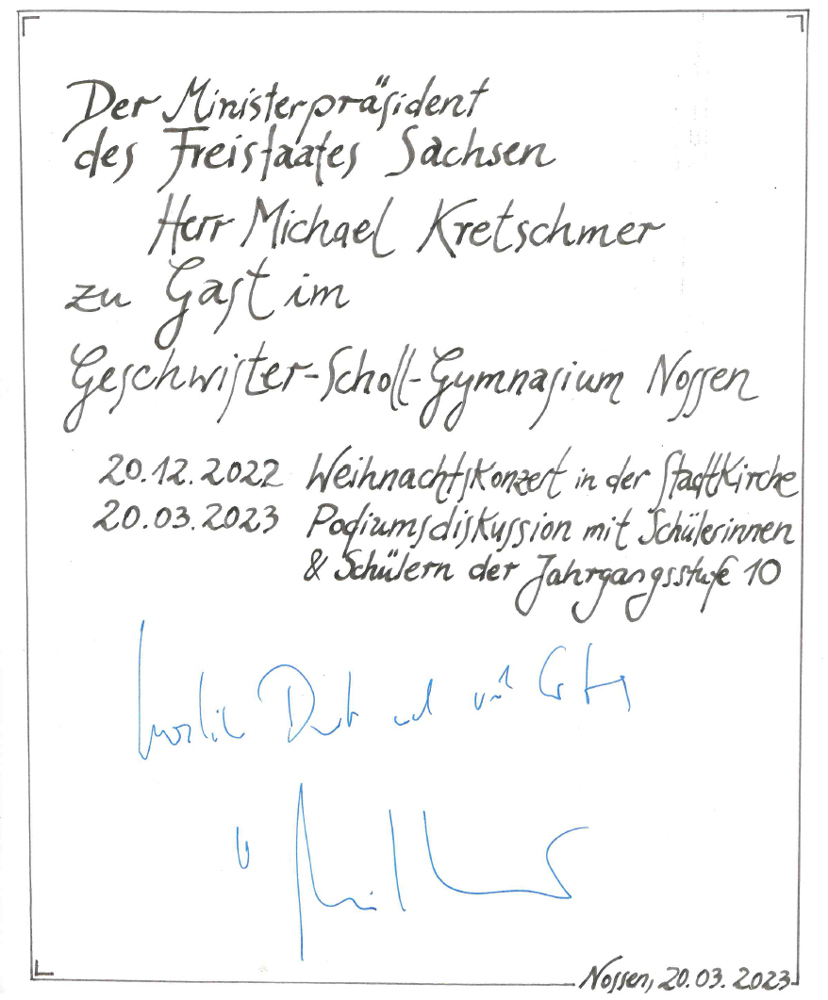 Der Ministerpräsident
des Freistaates Sachsen
Herr Michael Kretschmer
zu Gast im
Geschwister-Scholl-Gymnasium Nossen
20.12.2022 Weihnachtskonzert in der Stadtkirche
20.03.2023 Podiumsdiskussion mit Schülerinnen
& Schülern der Jahrgangsstufe 10
Herzlichen Dank und viel Erfolg
Nossen, 20.03.2023